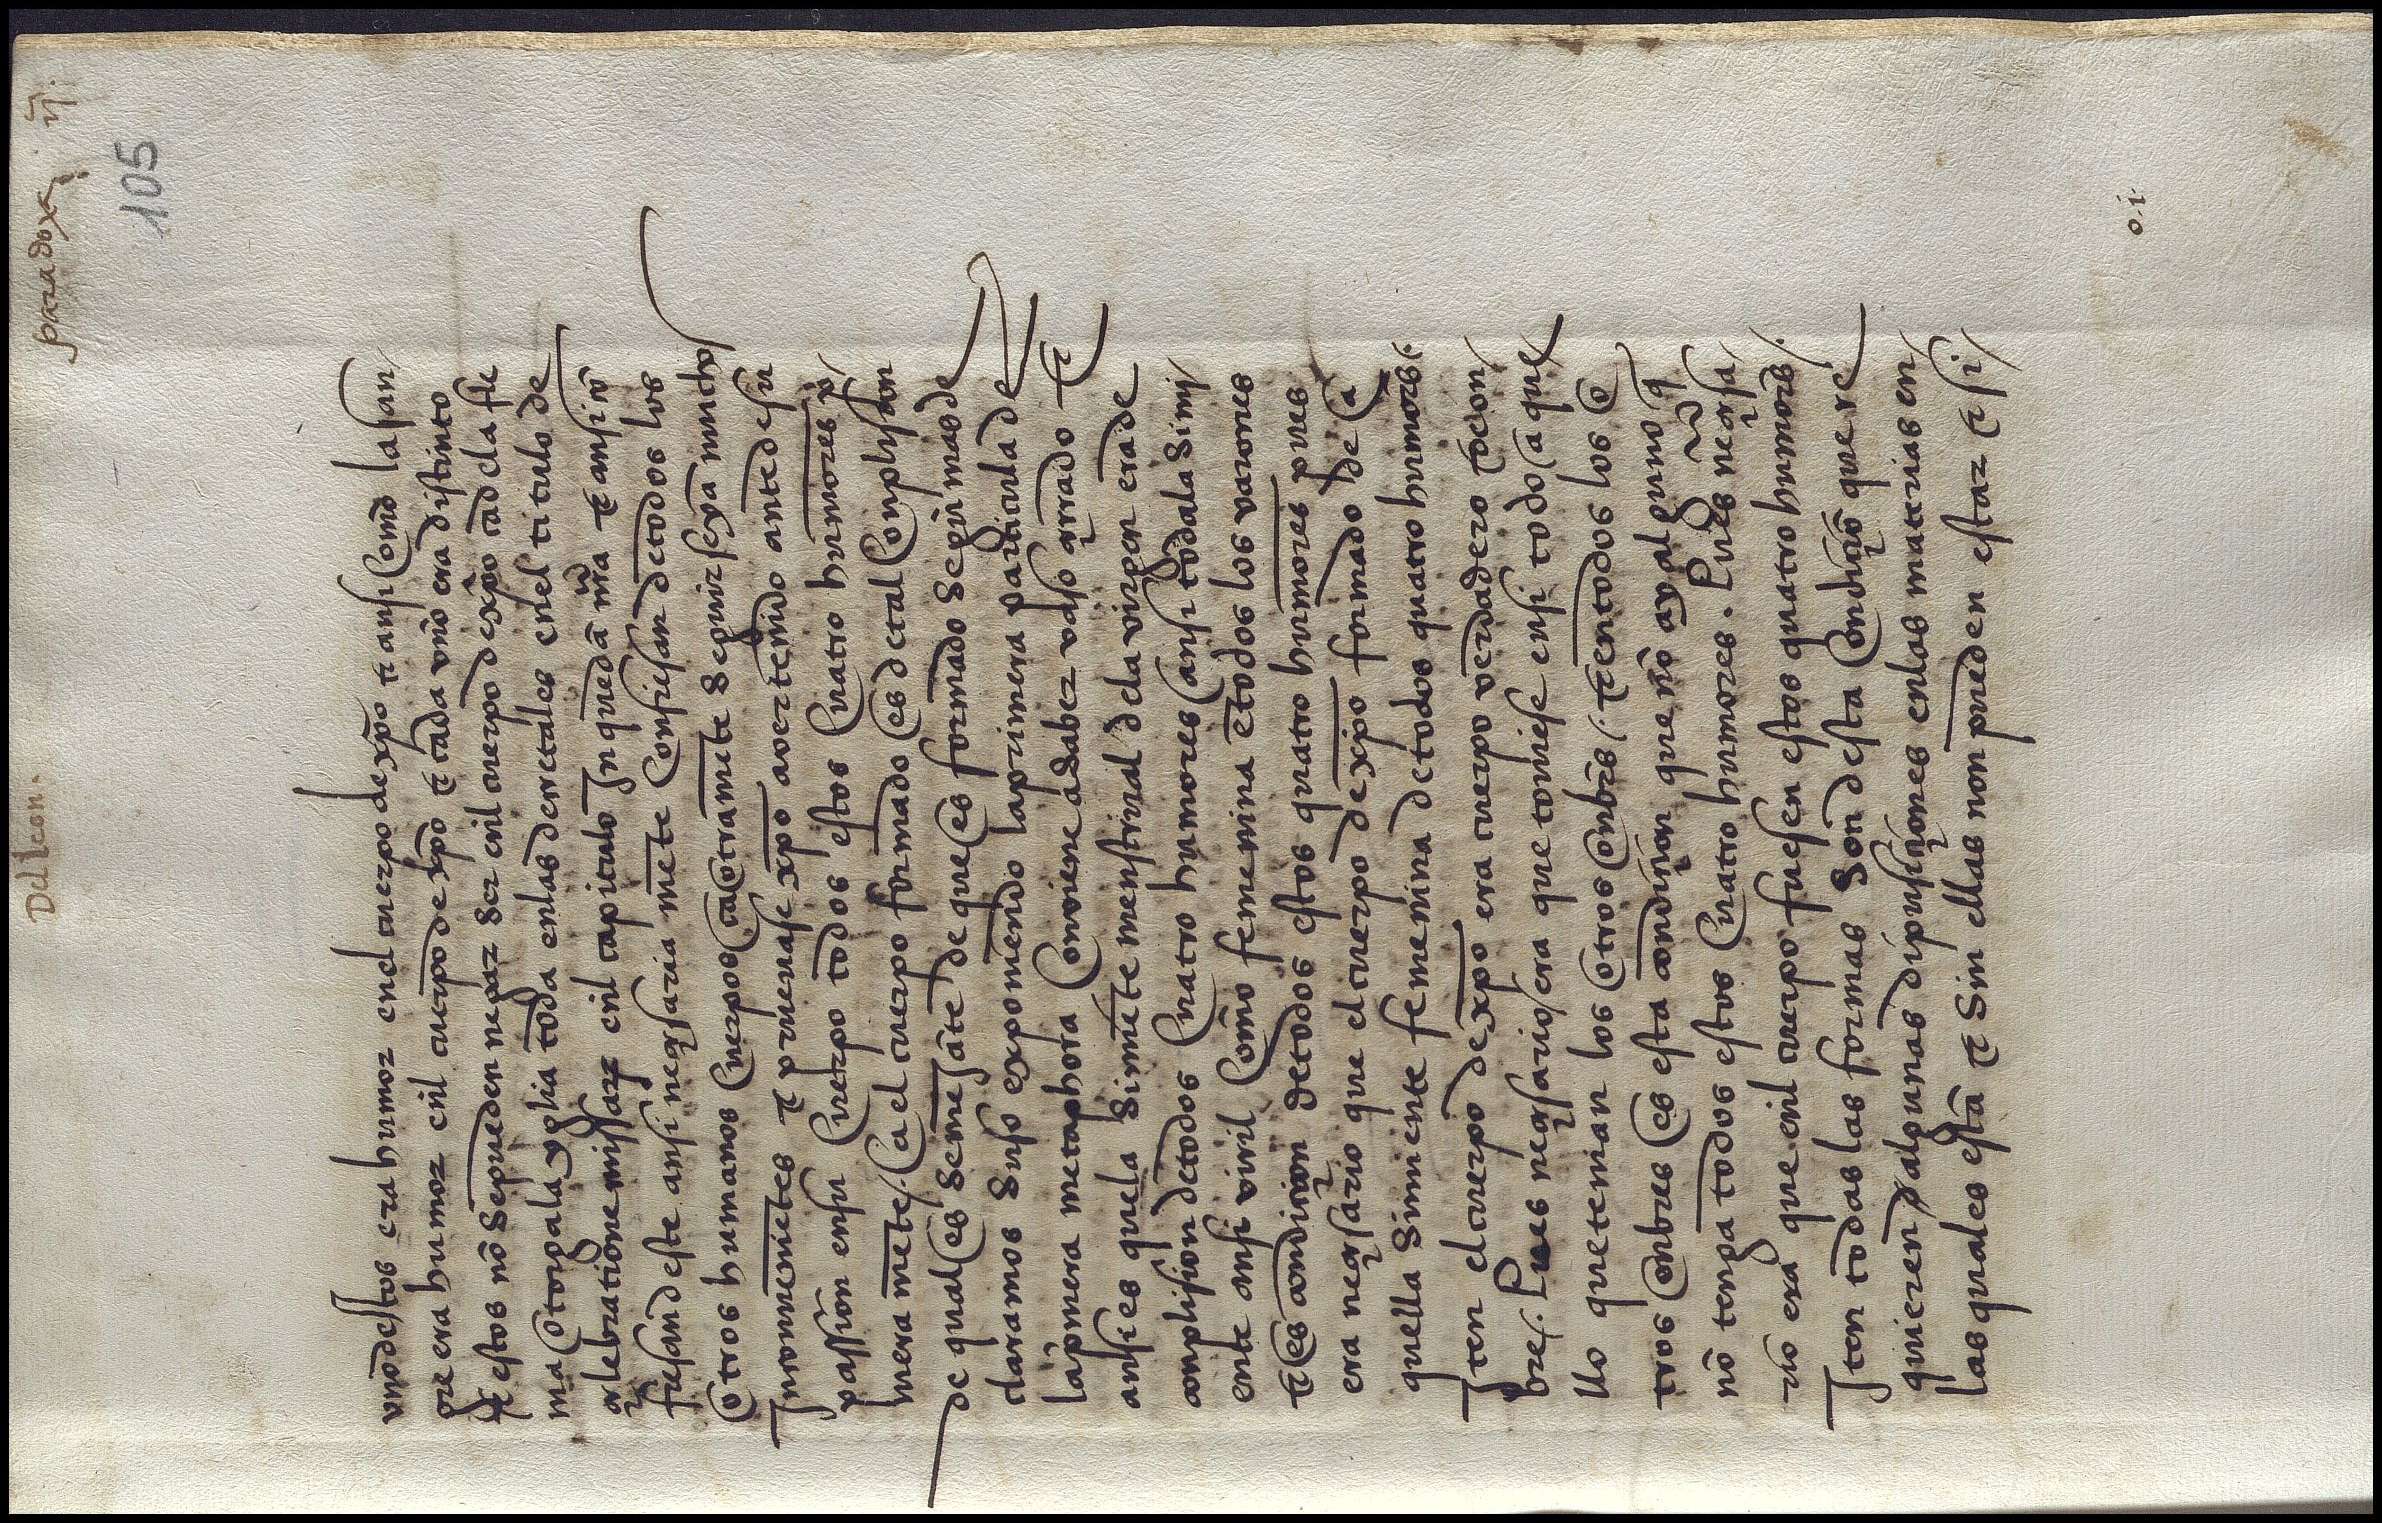 Del leon.
paradoxa vj.
105
vno destos era humor enel cuerpo de xpo τ ansi como la san
gre era humor enl cuerpo de xpo τ cada vno era distinto
τ estos nō se pueden negar ser enl cuerpo de xpo ca dela fe
ma otorgala yglia toda enlas decretales enel titulo de
celebratione missarz enl capitulo In quedā nra τ ansi nō
fuesan deste ansi neçesaria mēte confiesan de todos los
otros humanos cuerpos ca otramēte seguir seyā muchos
Inconuenietes τ prueuase xpo auer tenido ante de su
passion ensu cuerpo todos estos cuatro humores
mera mēte. Ca el cuerpo formado es de tal conplision
de qual es semejāte de que es formado segū mas de
claramos suso exponiendo la primera particula de
la ponera metaphora conviene a saber vaso çerrado τ
ansi es quela simiēte menstrual dela virgen era de
conplision de todos cuatro humores ca ansi toda la simi
ente ansi viril como feminina e todos los varones
τ es condiçion de todos estos quatro humores pues
era neçesario que el cuerpo de xpo formado de a
quella simiente femenina de todos quatro humores.
Iten el cuerpo de xpo era cuerpo verdadero de on
bre. Pues neçesario era que touiese ensi todo aque
llo que tenian los otros onbrs. τ en todos los o
tros onbres es esta condiçion que nō ay alguno q̄
nō tenga todos estos cuatro humores. Pues neçesa
rio era que enl cuerpo fuesen estos quatro humores.
Iten todas las formas son desta condiçiō que re
quieren algunas dispusiçiones enlas materias en
las quales estā τ sin ellas non pueden estar τ si
o.i.